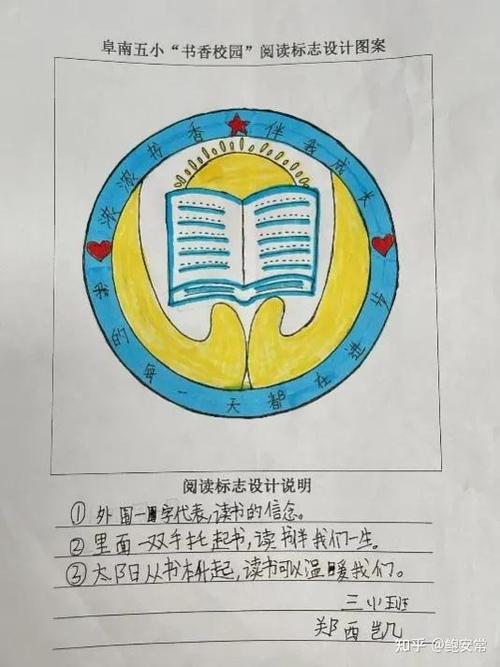 阜南五小“书香校园”阅读标志设计图案
浓浓书香 伴我成长
我的每一天都在进步
阅读标志设计说明
①外围一圈字代表,读书的信念。
②里面一双手托起书,读书伴我们一生。
③太阳从书本升起,读书可以温暖我们。
三(1)班
郑西凯
知乎 @鲍安常